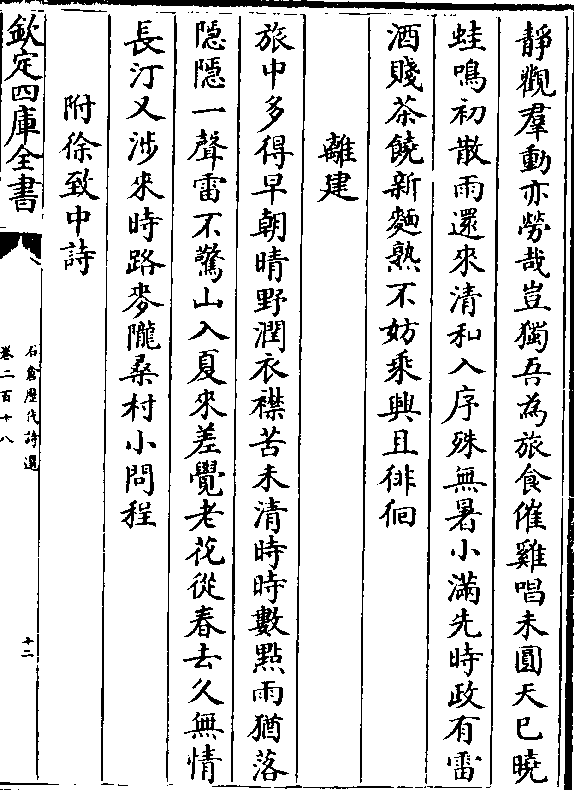 靜觀羣動亦勞哉豈獨吾為旅食催雞唱未圓天已曉
蛙鳴初散雨還來清和入序殊無暑小滿先時政有雷
酒賤茶饒新麵熟不妨乘興且徘徊
離建
旅中多得早朝晴野潤衣襟苦未清時時數點雨猶落
隠隠一聲雷不驚山入夏來差覺老花從春去久無情
長汀又涉來時路麥隴桑村小問程
附徐致中詩
欽定四庫全書
石倉歷代詩選
卷二百十八
十二